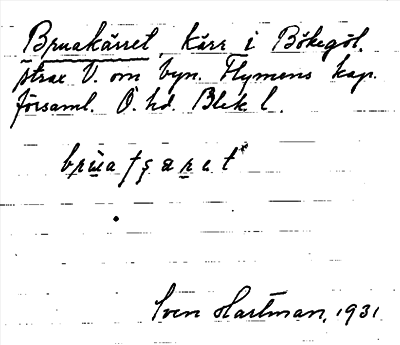 Bruakärret, Kärr i Bökegöl,
strax V. om byn. Flymens kap.
församl. Ö. hd. Blek l.
brùaʃçærət
Sven Hartman, 1931